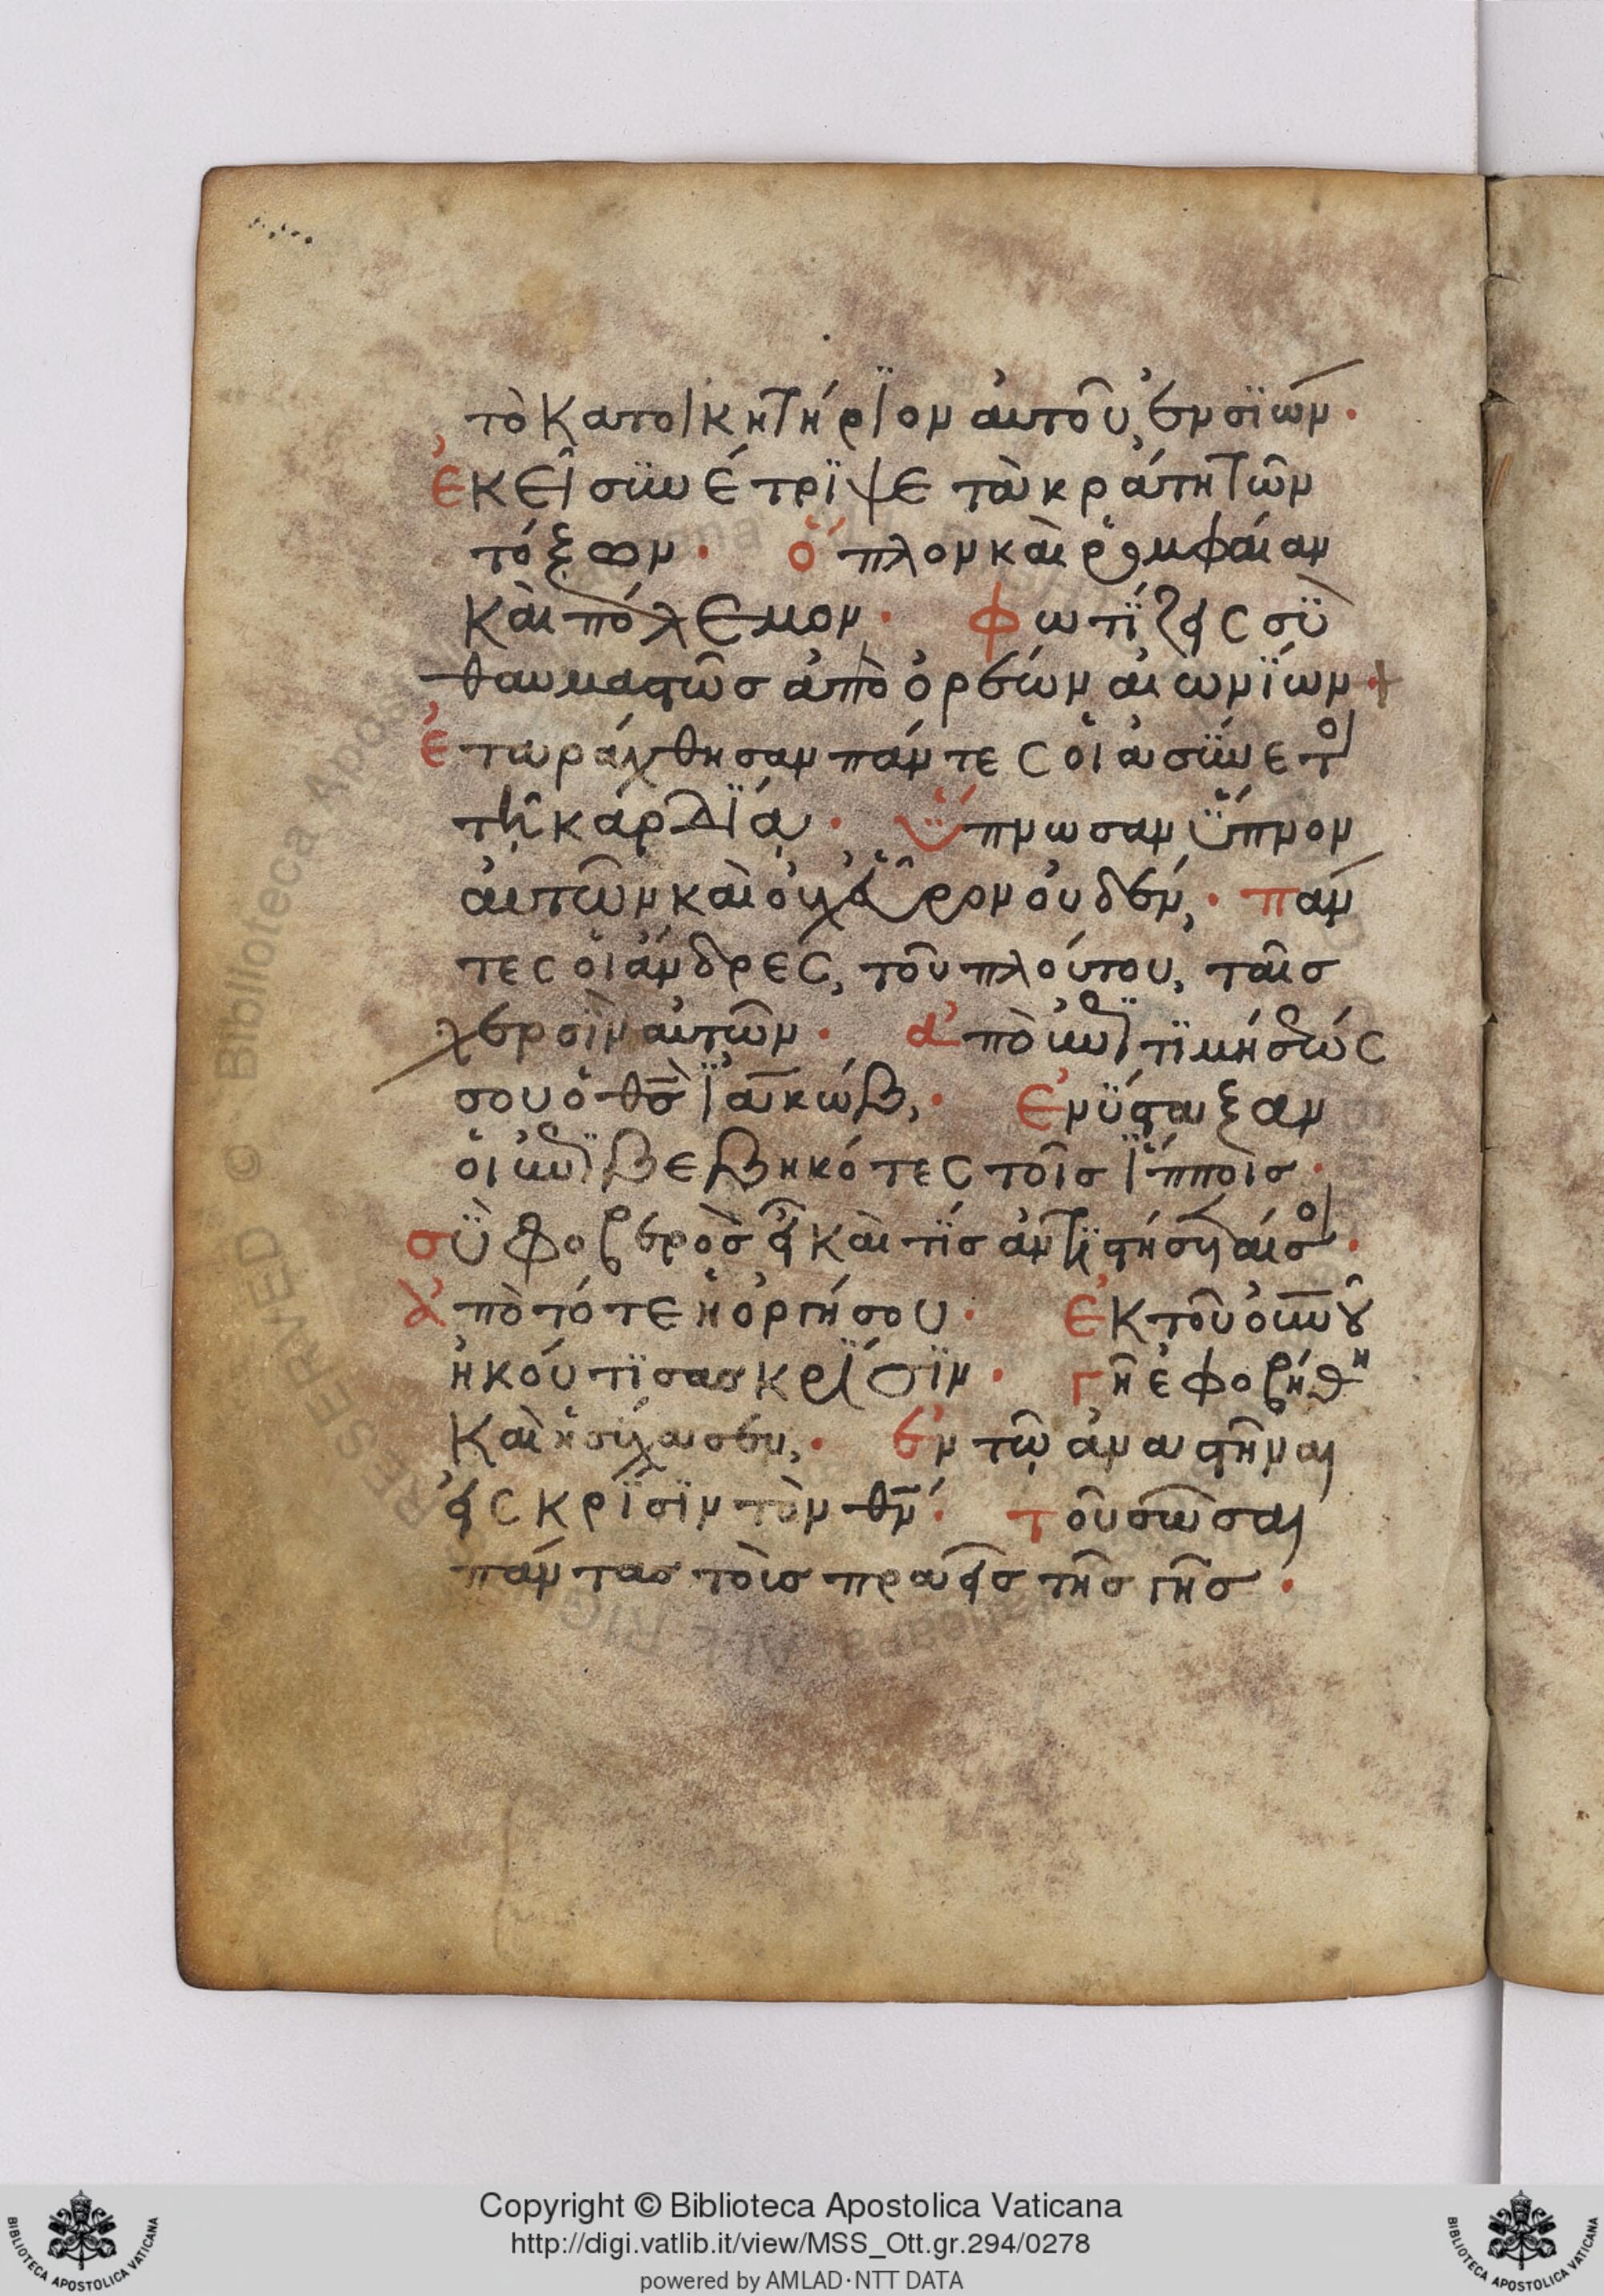 τὸ κατοικητήριον αὐτοῦ ἐν σϊών·
ἐκεῖ σϋνέτριψε τὰ κράτη τῶν
τόξων· ὅπλον καὶ ῥομφαίαν
καὶ πόλεμον· φωτίζεις σϋ
θαυμαστῶσ ἀπὸ ὀρέων αἰωνΐων·
ἐταράχθησαν πάντες οἱ ἀσϋνετοι
τῇ καρδΐᾳ· ὕπνωσαν ὕπνον
αὐτῶν καὶ οὐχ εὗρον οὐδέν,· πάν
τες οἱ ἄνδρες, τοῦ πλούτου, ταῖσ
χερσὶν αὐτῶν· ἀπὸ ἐπιτϊμήσεώς
σου ὁ θσ ϊακώβ,· ἐνΰσταξαν
οἱ ἐπιβεβηκότες τοῖσ ἵπποισ·
σϋ φοβερὸσ εἶ καὶ τίσ ἀντιστήσεταί σοι·
ἀπὸ τότε ἡ ὀργή σου· ἐκ τοῦ οὐνοῦ
ἠκούτϊσασ κρίσϊν· γῆ ἐφοβήθη
καὶ ἡσύχασεν,· ἐν τῷ ἀναστῆναι
εἰς κρΐσϊν τὸν θν· τοῦ σῶσαι
πάντασ τοὺσ πραεῖσ τῆσ γῆσ·
Copyright © Biblioteca Apostolica Vaticana
http://digi.vatlib.it/view/MSS_Ott.gr.294/0278
powered by AMLAD·NTT DATA
BIBLIOTECA APOSTOLICA VATICANA
BIBLIOTECA APOSTOLICA VATICANA